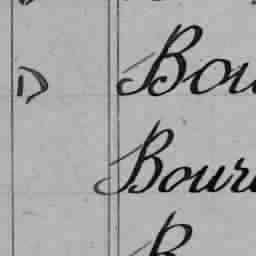 D Bou
Bour
B